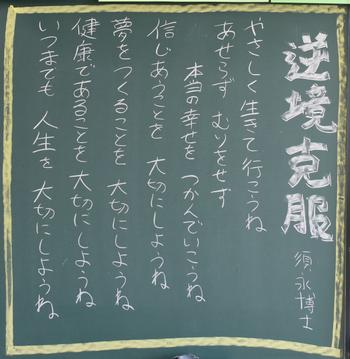 逆境克服
須永博士
やさしく生きて行こうね
あせらず むりをせず
本当の幸せを つかんでいこうね
信じあうことを 大切にしようね
夢をつくることを 大切にしようね
健康であることを 大切にしようね
いつまでも 人生を 大切にしようね